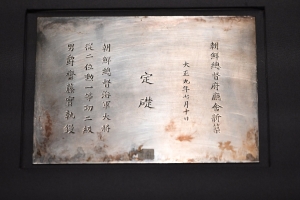 朝鮮總督府廳舍新築
大正九年七月十日
定礎
朝鮮總督海軍大將
從二位勳一等功二級
男爵齋藤實執鏝